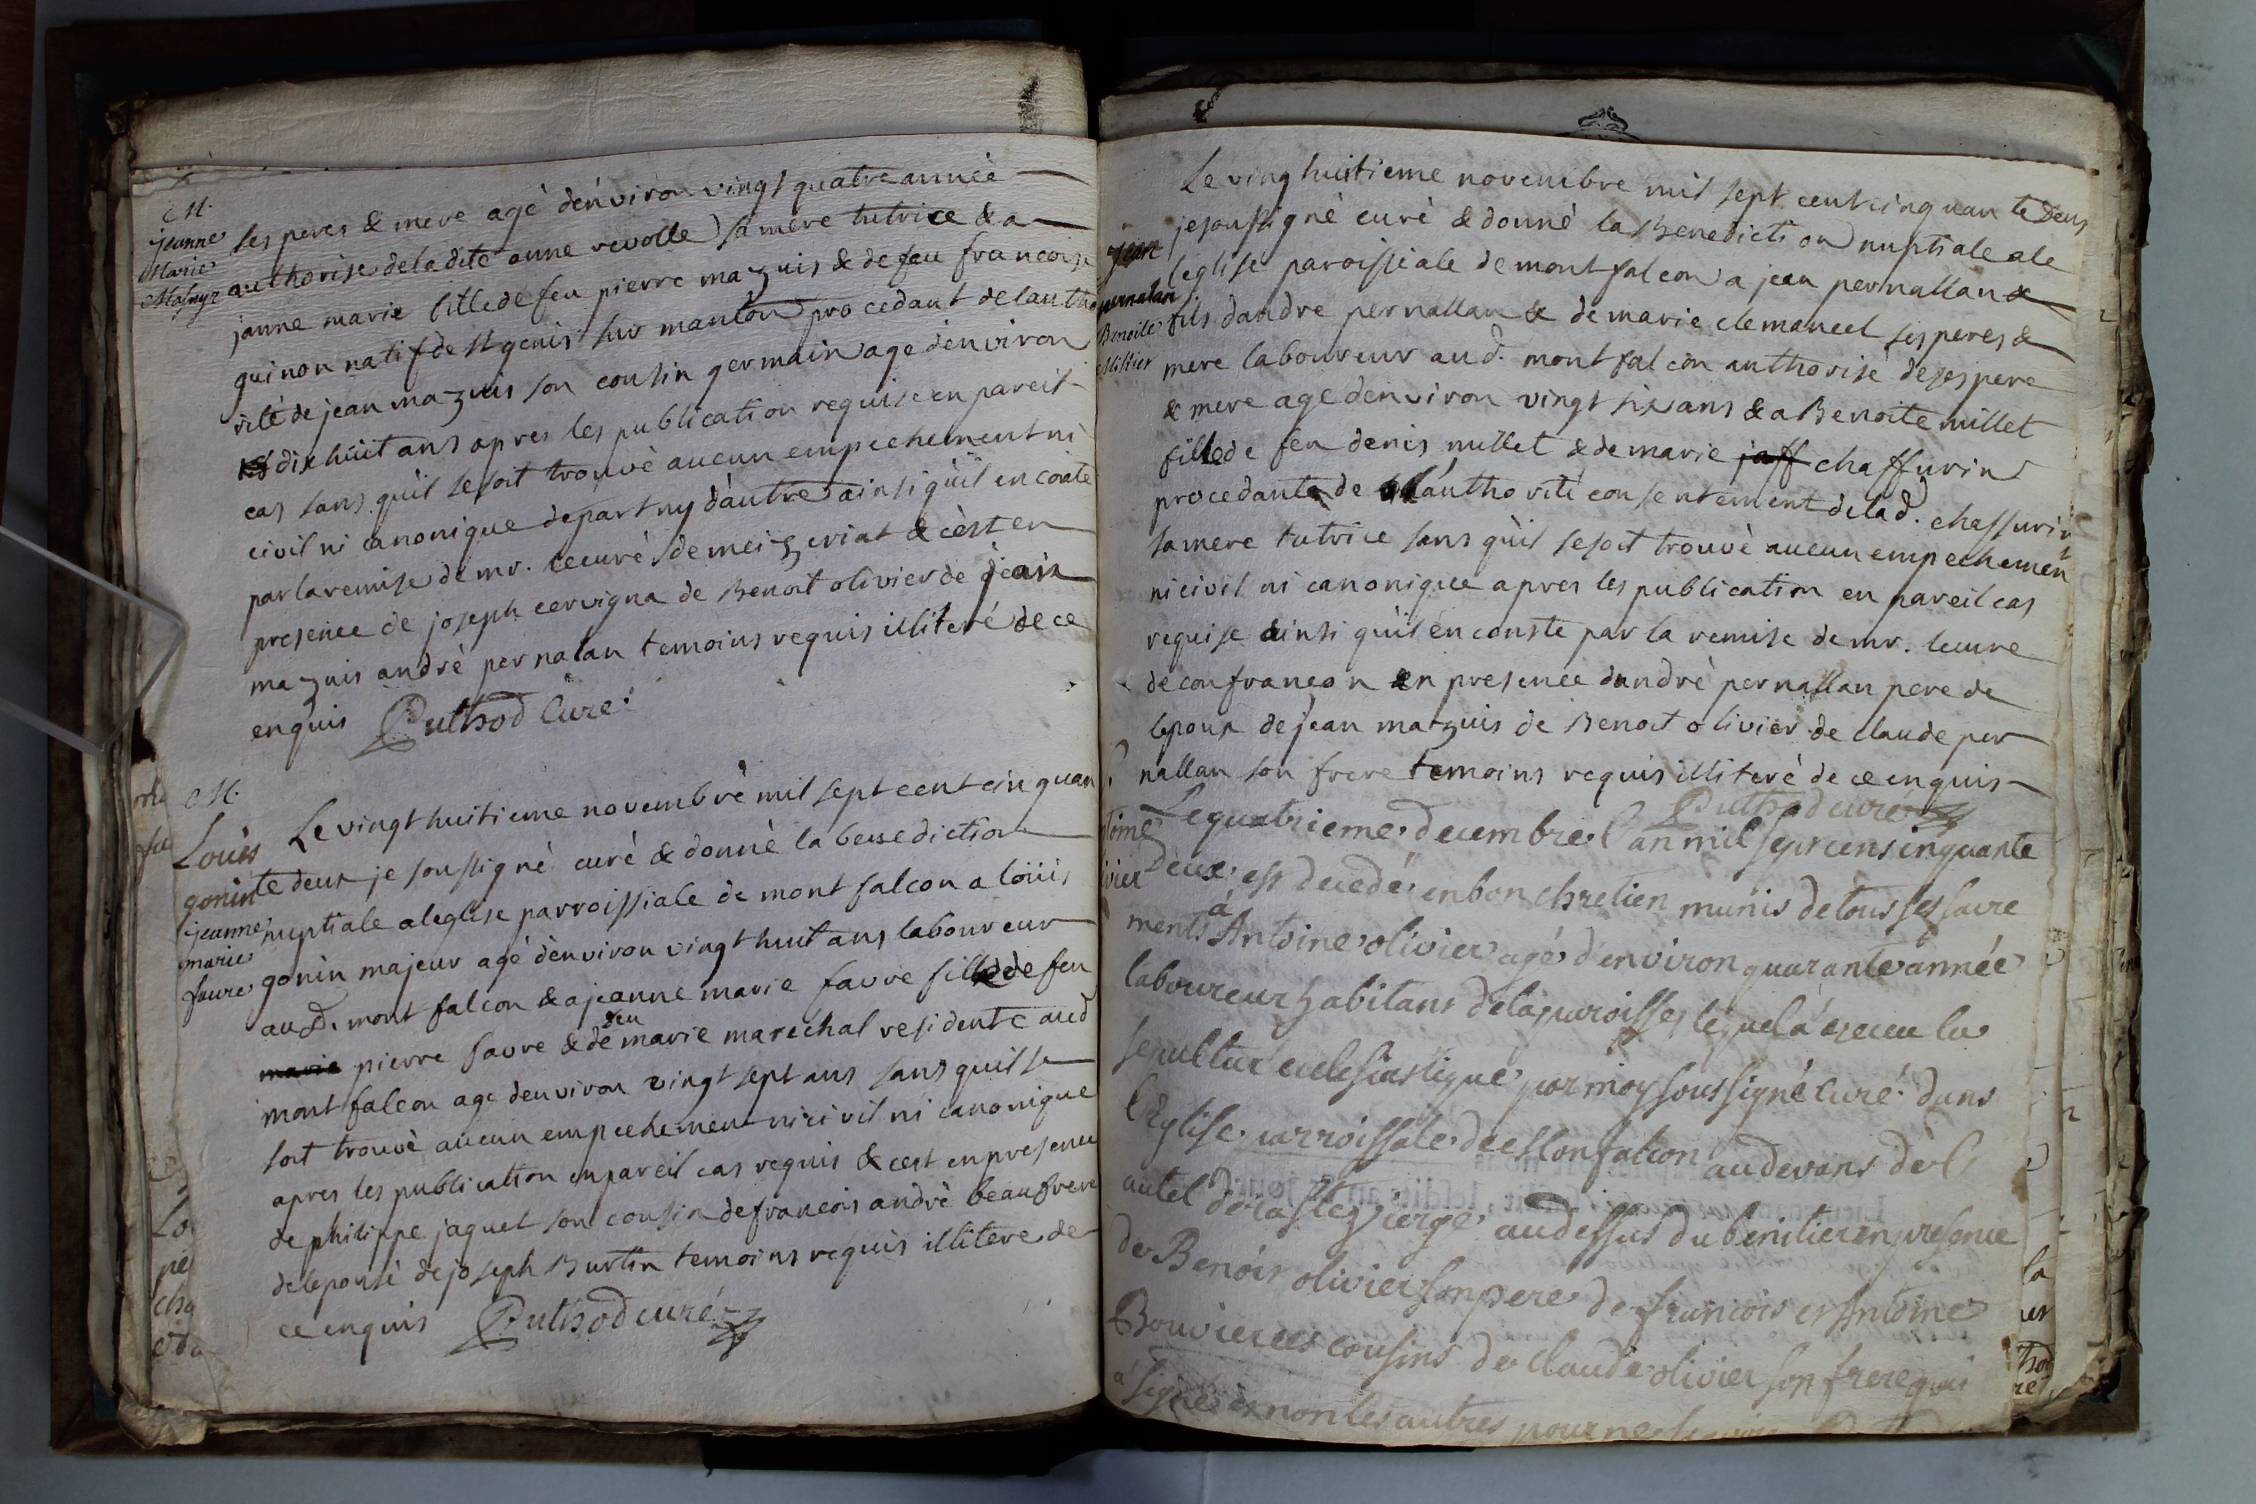 M.
jeanne
Marie
Mazuyr
ses peres & mere agè d'énviron vingt quatre annèè
authorise dela dite anne revolle sa mere tutrice & a
janne marie fille de feu pierre mazuis & de feu francoise
guinon natif de st genis sur manton procedant de lautho
rité de jean mazuis son cousin germain age dènviron
dix huit ans apres les publication requise en pareil
cas sans qùil se soit trouvè aucun empechement ni
civil ni canonique de part ny d'autre ainsi qùil en conste
par la remise de mr. le curè de meiz criat & cèst en
presence de joseph cervigna de Benoit olivier de jean
mazuis andrè pernalan temoins requis illiteré de ce
enquis Puthod Curé.
M.
Loùis
gonin
jeanne
marie
favre
Le vingt huitieme novembrè mil sept cent cinquan
te deux je soussignè curé & donnè la benediction
nuptiale a leglise parroissiale de mont falcon a loüis
gonin majeur agè dènviron vingt huit ans laboureur
aud. mont falcon & a jeanne marie favre fille de feu
marie pierre favre & de feu marie marechal residente aud
mont falcon age denviron vingt sept ans sans quil se
soit trouvè aucun empechement ni civil ni canonique
apres les publication en pareil cas requis & cest en presence
de philippe jaquet son cousin de francois andrè beaufrere
de lepousè de joseph Burtin temoins requis illitere de
ce enquis Puthod curé
jean
pernalan
Benoite
Millier
Le ving huitieme novembre mil sept cent cinquante deus
je soussignè curè & donnè la Benediction nuptiale a le
leglise paroissiale de mont falcon a jean pernallan
fils dandre pernallan & de marie clemancel ses peres &
mere laboureur aud. mont falcon authorisè de ses pere
& mere age denviron vingt six ans & a Benoite millet
fille de feu denis millet & de marie jaff chaffurin
procedante de l'authoritè consentement de lad. chaffurin
sa mere tutrice sans qùil se soit trouvè aucun empechement
ni civil ni canonique apres les publication en pareil cas
requise ainsi qùil en conste par la remise de mr. le cure
de confrancon en presence dandrè pernallan pere de
lepoux de jean mazuis de Benoit olivier de claude per
nallan son frere temoins requis illiterè de ce enquis
Puthod curé
Le quatrieme decembre l'an mil sept cens cinquante
deux est decedé en bon chretien munis de tous ses sacre
ments à Antoine olivier agé d'environ quarante année
laboureur habitans de la paroisse, lequel à eceu la
sepultur eclesiastique par moy soussigné Curé dans
l'Eglise parroissale de Monfalcon au devans de l'
autel de la ste vierge au dessus du benitier en presence
de Benoit olivier son pere de francois et Antoine
Bouvier ces cousins de Claude olivier son frere qui
à signé et non les autres pour ne